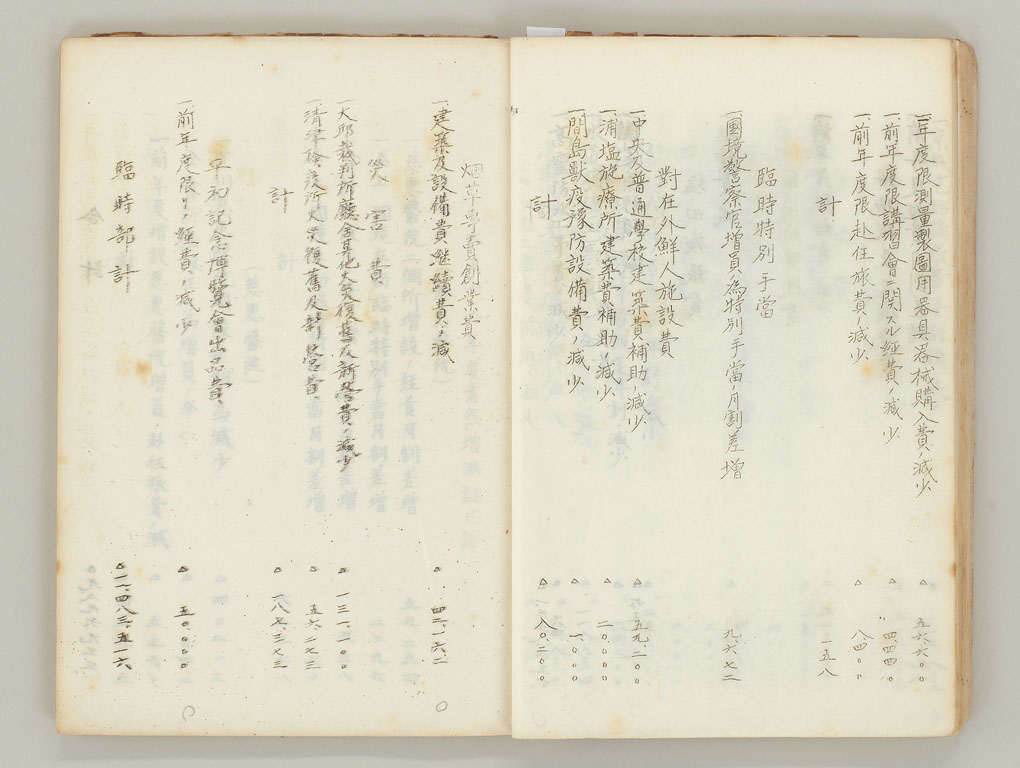 一、年度限測量製圖用器具器械購入費ノ減少 △五六、六〇〇
一、前年度限講習會ニ関スル經費ノ減少 △四、四四〇
一、前年度限赴任旅費ノ減少 △八、四〇〇
計 一五八
臨時特別手當
一、國境警察官増員ノ為特別手當ノ月割差増 九、六七二
對在外鮮人施設費
一、中央及普通學校建築費補助ノ減少 △五九、二〇〇
一、浦塩施療所建築費補助ノ減少 △二〇、〇〇〇
一、間島獣疫豫防設備費ノ減少 △一、〇〇〇
計 △八〇、二〇〇
烟草専賣創業費
一、建築及設備費継續費ノ減 △四二、一六二
営繕費
一、大邱裁判所廳舎其他火災復舊及新營費ノ減少 △一三一、一〇〇
一、清津検疫所火災復舊及新營費 △五六、二七三
計 △一八七、三七三
平和記念博覽會出品費
一、前年度限リノ經費ノ減少 △五〇、〇〇〇
臨時部計 △一一、四八三、五一六